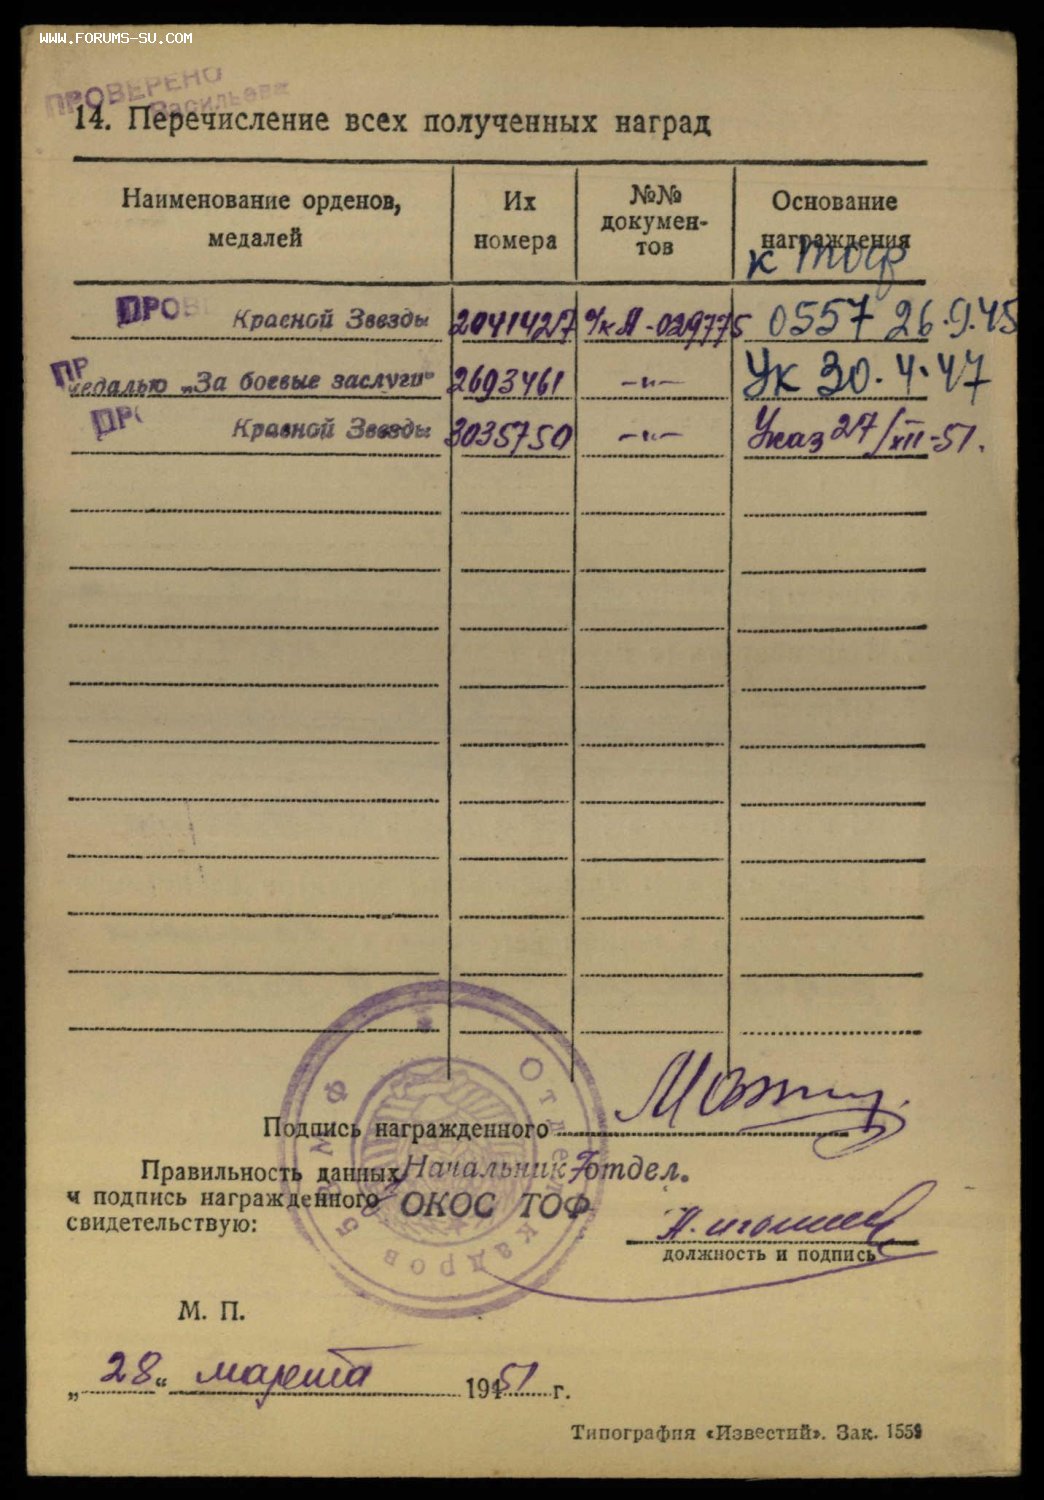 WWW.FORUMS-SU.COM
ПРОВЕРЕНО
Васильева
14. Перечисление всех полученных наград
Наименование орденов, медалей
Их номера
№№ докумен-тов
Основание награждения
к ТОФ
ПРОВ Красной Звезды 2041427 Ук А-029775 0557 26.9.45
ПР медалью „За боевые заслуги" 2693461 —„— Ук 30.4.47
ПРО Красной Звезды 3035750 —„— Указ 27/XII-51.
Подпись награжденного
Правильность данных Начальник отдел.
и подпись награжденного ОКОС ТОФ
свидетельствую:
должность и подпись
Отдел кадров 5 ВМФ
М. П.
„28“ марта 1951 г.
Типография «Известий». Зак. 1559